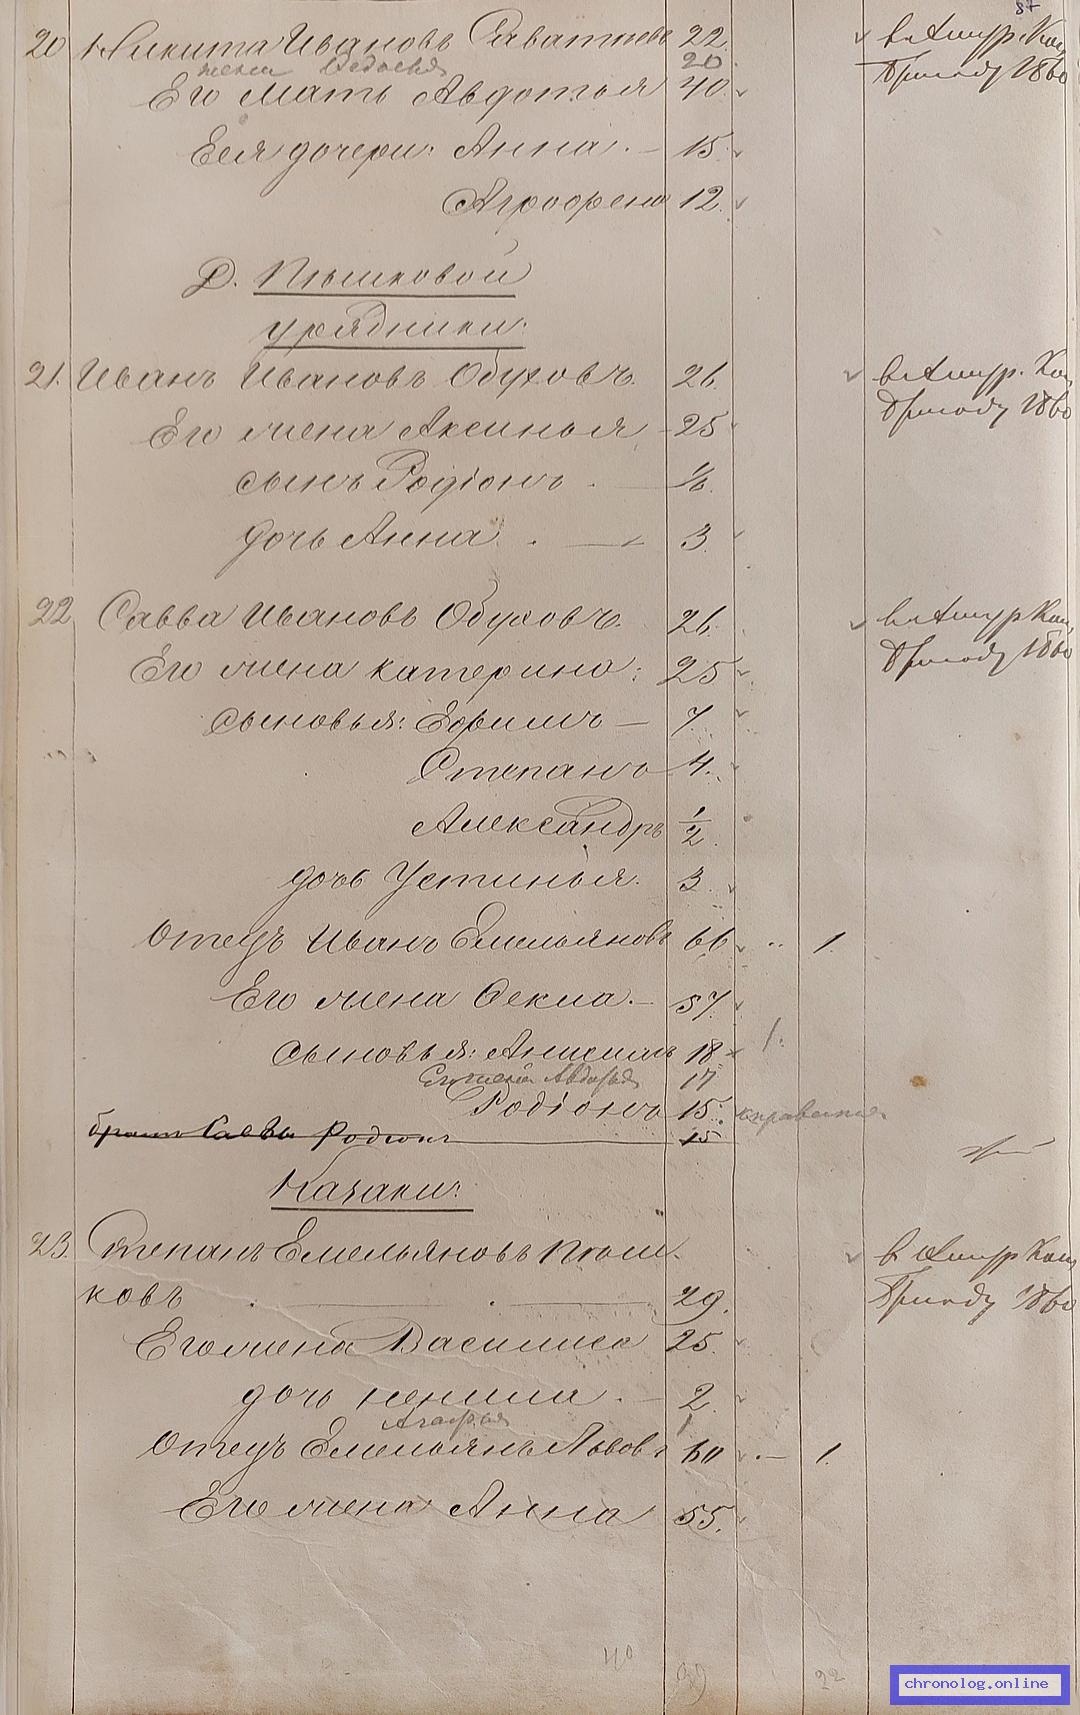 87
20 Никита Ивановъ Саватеевъ 22. в Амур. Ком.
жена Федосья 20
Его мать Авдотья 40 1860
Ея дочери: Анна. — 15
Агрофена 12.
Д. Пѣшковой
урядники:
21. Иванъ Ивановъ Обуховъ. 26. в Амур. Ком
Его жена Аксинья 25 1860
сынъ Родіонъ .
дочь Анна . — 3.
22 Савва Ивановъ Обуховъ. 26. в Амур Ком,
Его жена катерина: 25 1860
сыновья: Ефимъ — 7.
Степанъ 4.
Александръ 1/2
дочь Устинья. 3
Отецъ Иванъ Емельяновъ 66 1.
Его жена Фекла. — 57.
сыновья: 18 1.
Его жена Авдотья 17
Родіонъ 15.
братъ Саввы Родіонъ 15
Казаки:
23. Степанъ Емельяновъ Пѣш- в Амур Ком
ковъ 29. 1860
Его жена Василиса 25.
дочь 2.
Агафья 1
Отецъ Емельянъ Львовъ 60 — 1.
Его жена Анна 55.
40 39 22
chronolog.online